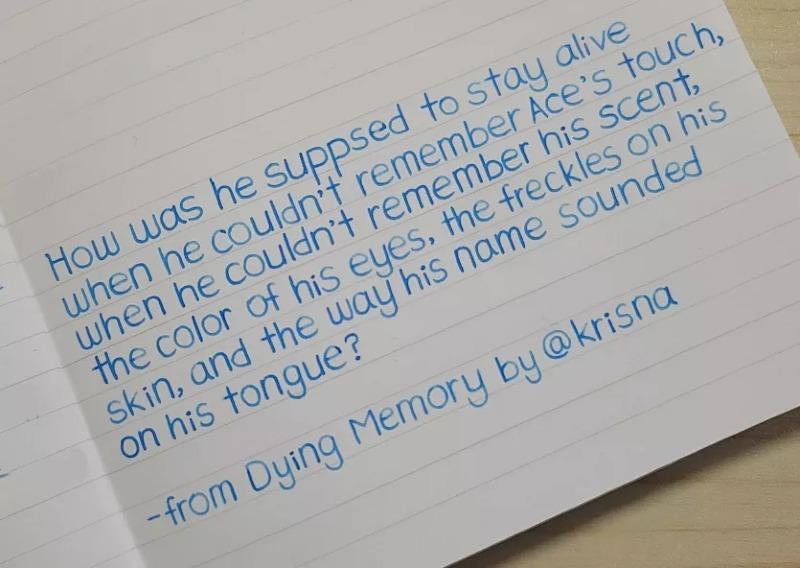 How was he suppsed to stay alive
when he couldn't remember Ace's touch,
when he couldn't remember his scent,
the color of his eyes, the freckles on his
skin, and the way his name sounded
on his tongue?
-from Dying Memory by @krisna